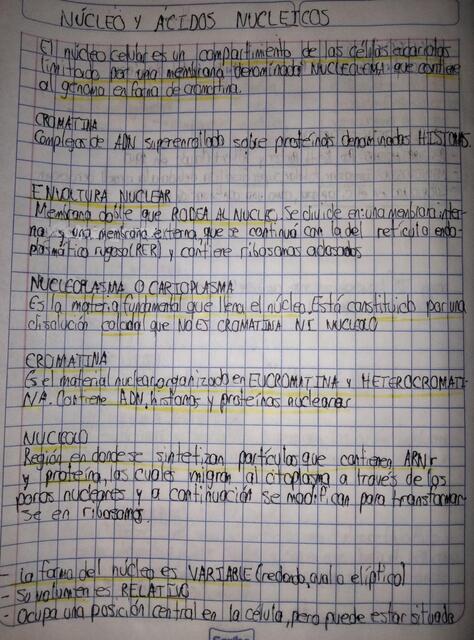 NÚCLEO Y ÁCIDOS NUCLEICOS
El núcleo celular es un compartimento de las células eucariotas
limitado por una membrana denominada NUCLEOLEMA que contiene
al genoma en forma de cromatina.
CROMATINA
Complejos de ADN superenrollado sobre proteínas denominadas HISTONAS.
ENVOLTURA NUCLEAR
Membrana doble que RODEA AL NUCLEO. Se divide en: una membrana inter-
na y una membrana externa que se continúa con la del retículo endo-
plasmático rugoso (RER) y contiene ribosomas adosados
NUCLEOPLASMA O CARIOPLASMA
Es la materia fundamental que llena el núcleo. Está constituido por una
disolución coloidal que NO ES CROMATINA NI NUCLEOLO
CROMATINA
Es el material nuclear organizado en EUCROMATINA y HETEROCROMATI-
NA. Contiene ADN, histonas y proteínas nucleares
NUCLEOLO
Región en donde se sintetizan partículas que contienen ARNr
y proteína, las cuales migran al citoplasma a través de los
poros nucleares y a continuación se modifican para transformar-
se en ribosomas.
- La forma del núcleo es VARIABLE (redondo, oval o elíptico)
- Su volumen es RELATIVO
- Ocupa una posición central en la célula, pero puede estar situada